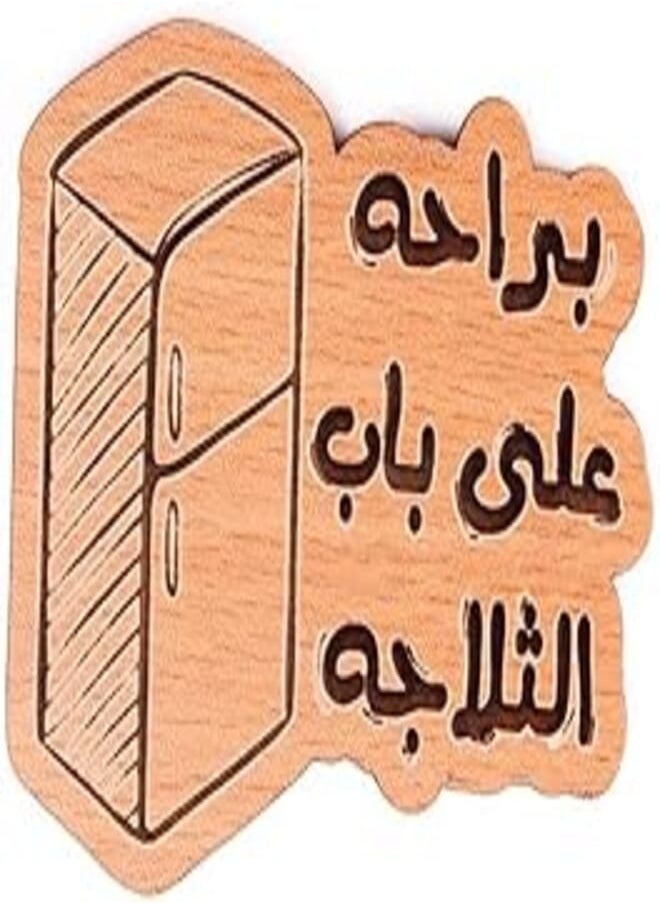 براحه
على باب
الثلاجه